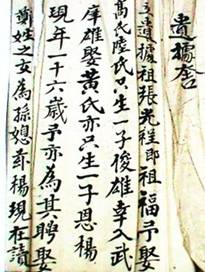 遺據
立遺據祖張光程即祖福予娶
高氏陸氏只生一子俊雄幸入武
庠雄娶黃氏亦只生一子恩楊
現年一十六歲予亦為其聘娶
姓之女為孫媳奈楊現在讀